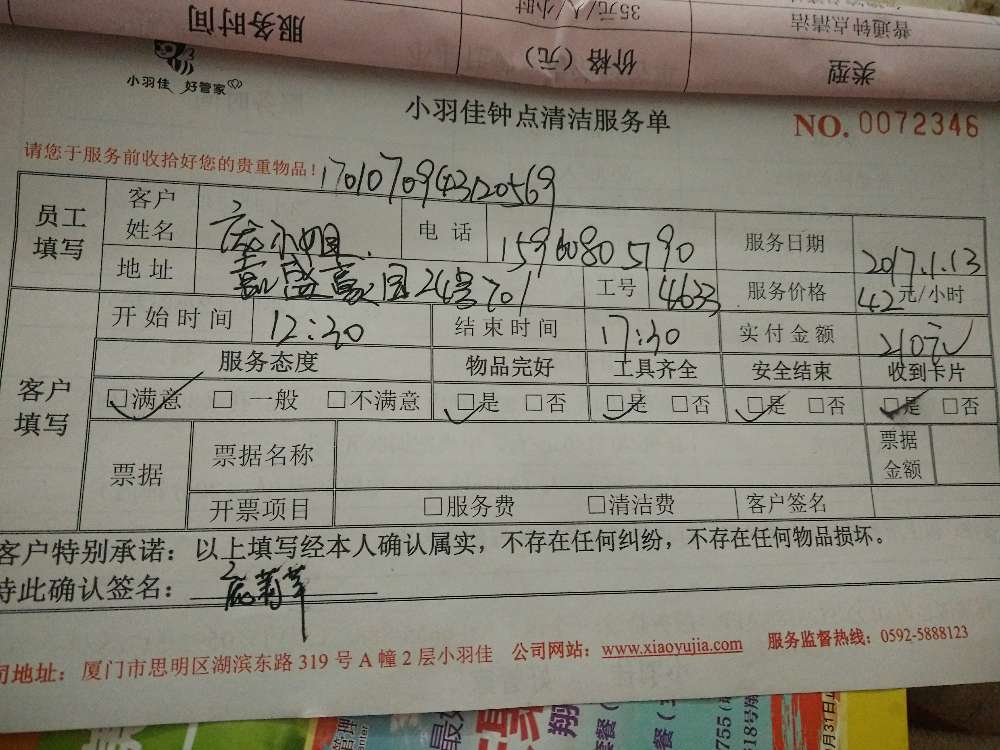 服务时间
35元/人/小时
普通钟点清洁
价格（元）
类型
小羽佳 好管家
小羽佳钟点清洁服务单
NO. 0072346
请您于服务前收拾好您的贵重物品！
员工填写
客户姓名
小姐
电话
15960805190
服务日期
2017.1.13
地址
凯盛豪园24号701
工号
4633
服务价格
42元/小时
客户填写
开始时间
12:30
结束时间
17:30
实付金额
210元
服务态度 物品完好 工具齐全 安全结束 收到卡片
□满意 □一般 □不满意 □是 □否 □是 □否 □是 □否 □是 □否
票据
票据名称
票据金额
开票项目 □服务费 □清洁费 客户签名
客户特别承诺：以上填写经本人确认属实，不存在任何纠纷，不存在任何物品损坏。
特此确认签名：
司地址：厦门市思明区湖滨东路319号A幢2层小羽佳 公司网站：www.xiaoyujia.com 服务监督热线：0592-5888123